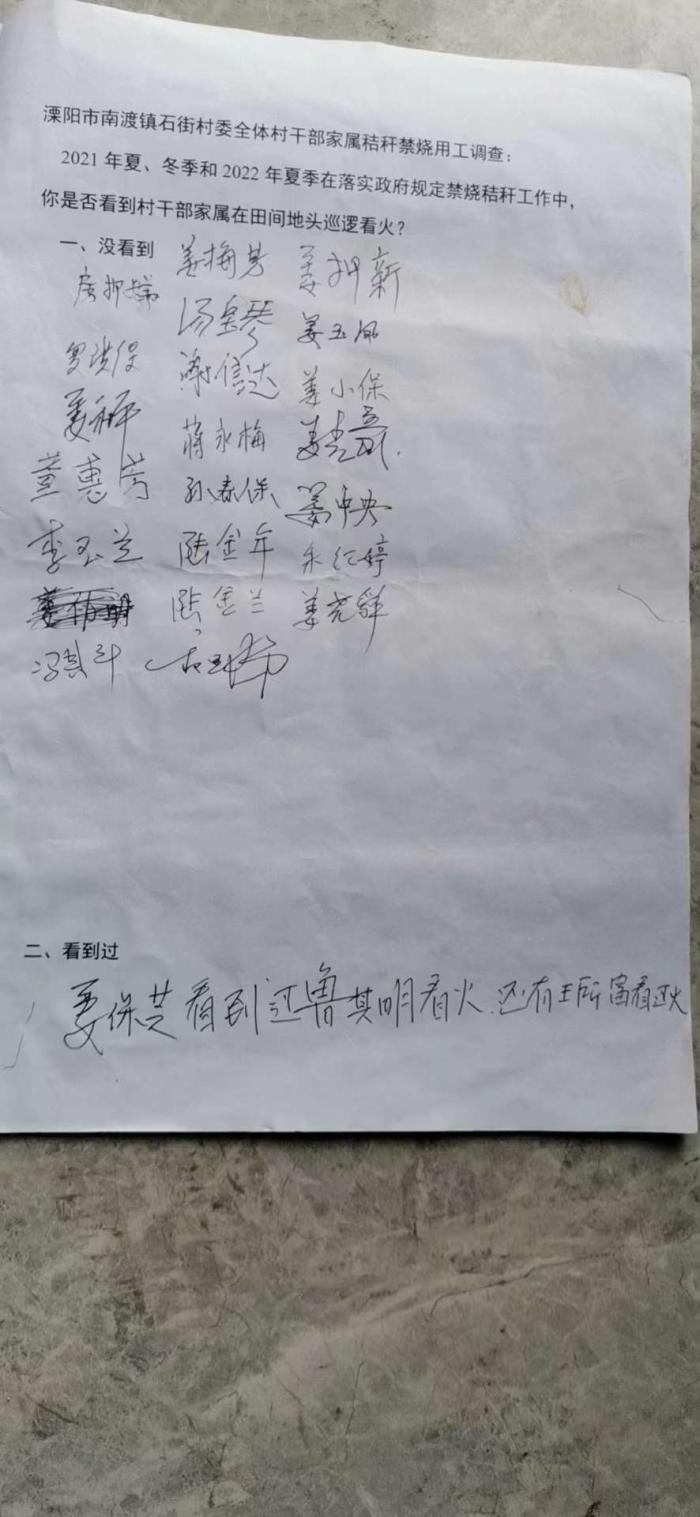 溧阳市南渡镇石街村委全体村干部家属秸秆禁烧用工调查：
2021年夏、冬季和2022年夏季在落实政府规定禁烧秸秆工作中，
你是否看到村干部家属在田间地头巡逻看火？
一、没看到 姜梅芳 姜押新
房押娣 汤金琴 姜玉凤
罗洪保 谢信达 姜小保
蒋永梅
董惠芳 孙春保 姜中央
李玉兰 陆金年 朱红婷
陆金兰
冯其斗
二、看到过
姜保芝看到过鲁其明看火.还有王所富看过火